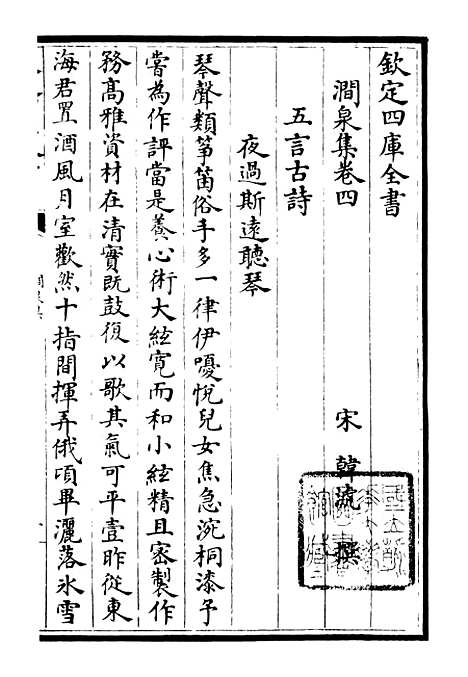 欽定四庫全書
澗泉集卷四
宋 韓淲 撰
五言古詩
夜過斯遠聽琴
琴聲類箏笛俗手多一律伊嚘悅兒女焦急涴桐漆予
嘗為作評當是養心術大絃寛而和小絃精且宻製作
務髙雅資材在清實既鼓復以歌其氣可平壹昨從東
海君置酒風月室歡然十指間揮弄俄頃畢灑落氷雪